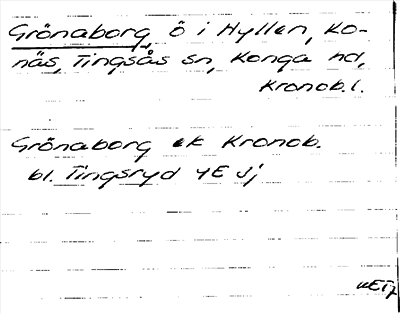 Grönaborg, ö i Hyllen, Ko-
näs, Tingsås sn, Konga hd,
Kronob. l.
Grönaborg ek Kronob.
bl. Tingsryd 4E Sj